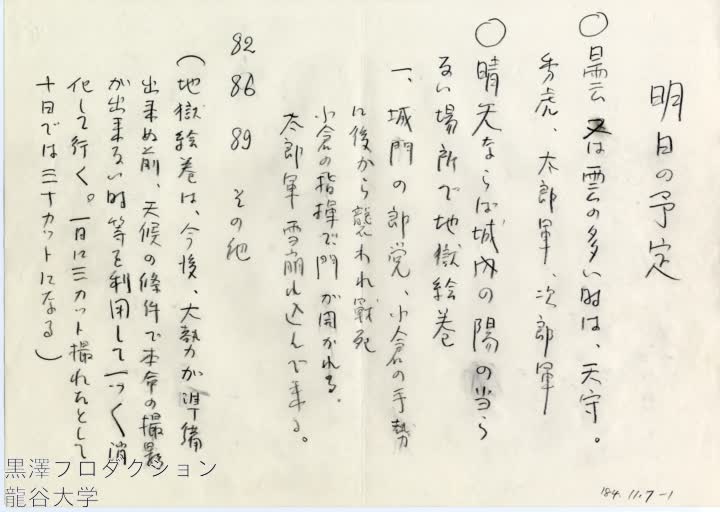 明日の予定
○曇天又は雲の多い時は、天守。
秀虎、太郎軍、次郎軍
○晴天ならば城内の陽の当ら
ない場所で地獄絵巻
一、城門の郎党、小倉の手勢
に後から襲われ戦死
小倉の指揮で門が開かれる。
太郎軍雪崩れ込んで来る。
82 86 89 その他
(地獄絵巻は、今後、大勢力が準備
出来ぬ前、天候の條件で本命の撮影
が出来ない時等を利用して一つ〱消
化して行く。一日に三カット撮れたとして
十日では三十カットになる)
'84.11.7-1
黒澤プロダクション
龍谷大学